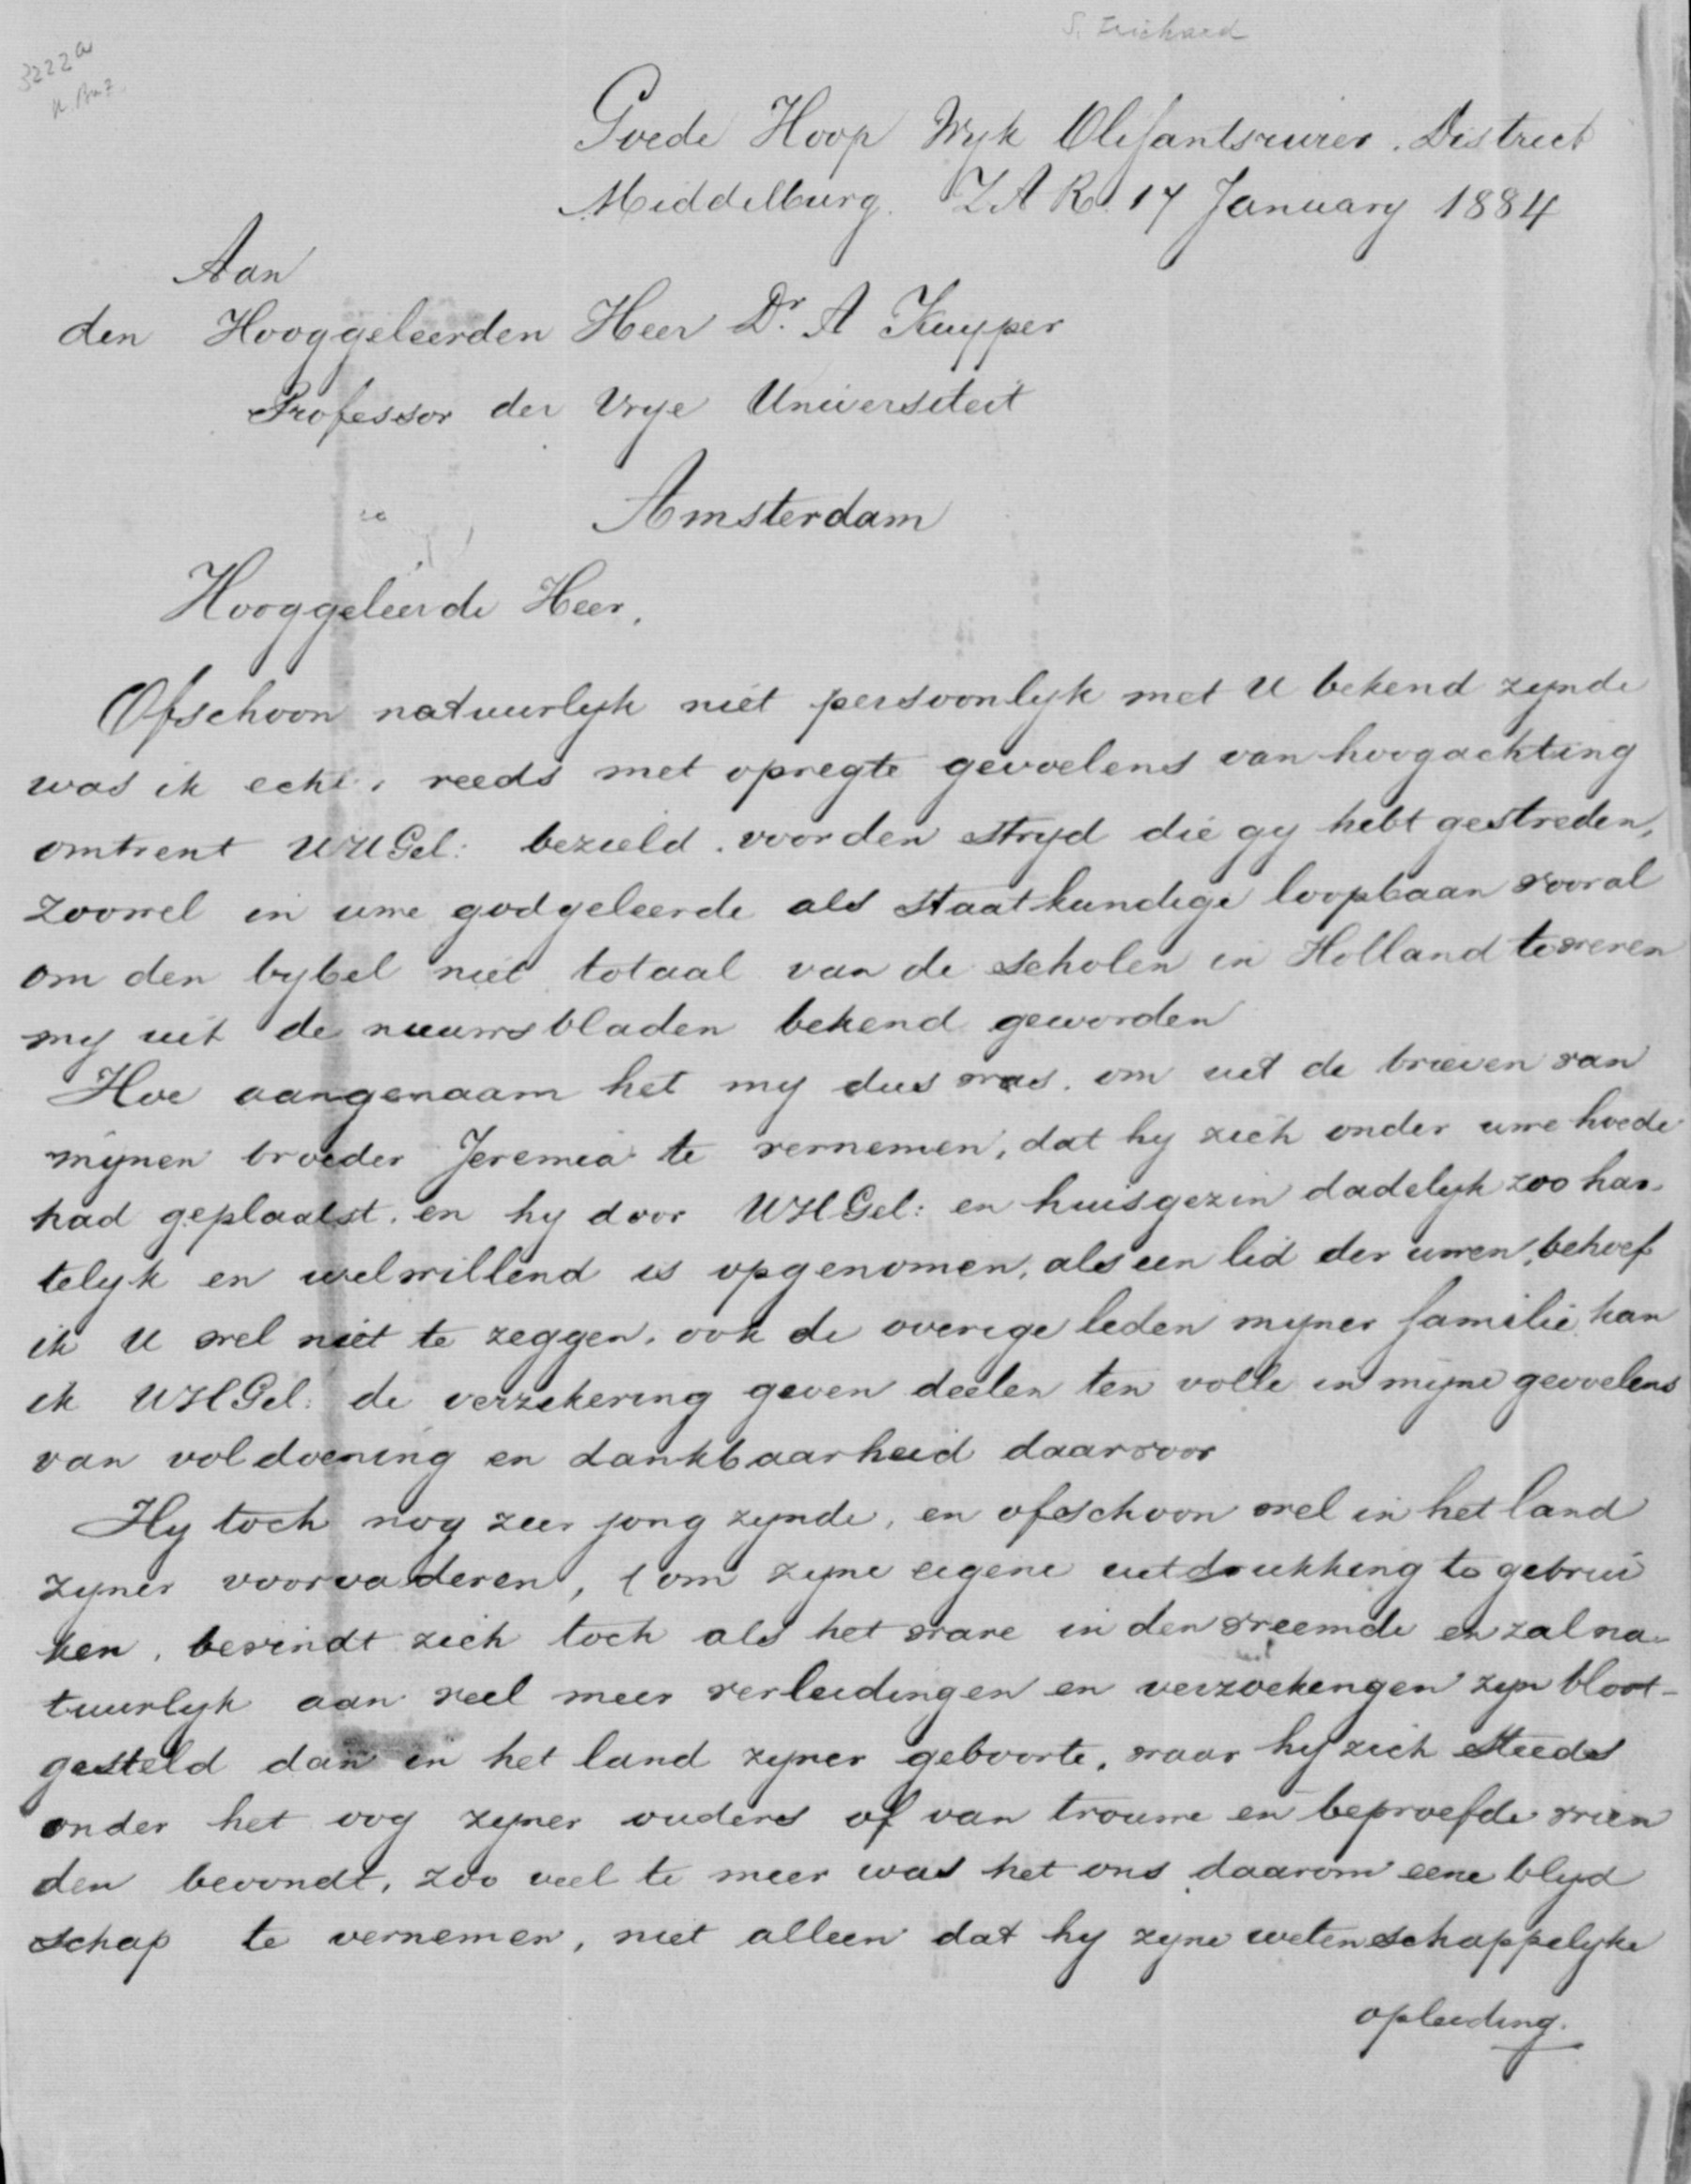 S. Trichard
3222a
Goede Hoop Wyk Olifantsrivier. District
Middelburg. Z A R. 17 January 1884
Aan
den Hooggeleerden Heer Dr. A Kuyper
Professor der Vrye Universiteit
Amsterdam
Hooggeleerde Heer,
Ofschoon natuurlyk niet persoonlyk met U bekend zynde
was ik echter reeds met opregte gevoelens van hoogachting
omtrent UHGel: bezield. voor den stryd die gy hebt gestreden,
zoowel in uwe godgeleerde als staatkundige loopbaan vooral
om den bybel niet totaal van de scholen in Holland te weren
my uit de nieuwsbladen bekend geworden
Hoe aangenaam het my dus was. om uit de brieven van
mynen broeder Jeremia te vernemen, dat hy zich onder uwe hoede
had geplaatst. en hy door UHGel: en huisgezin dadelyk zoo har-
telyk en welwillend is opgenomen, als een lid der uwen, behoef
ik U wel niet te zeggen. ook de overige leden myner familie kan
ik UHGel: de verzekering geven deelen ten volle in myne gevoelens
van voldoening en dankbaarheid daarvoor
Hy toch nog zeer jong zynde, en ofschoon wel in het land
zyner voorvaderen, (om zyne eigene uitdrukking te gebrui
ken, bevindt zich toch als het ware in den vreemde en zal na-
tuurlyk aan veel meer verleidingen en verzoekingen zyn bloot-
gesteld dan in het land zyner geboorte, waar hy zich steeds
onder het oog zyner ouders of van trouwe en beproefde vrien
den bevondt, zoo veel te meer was het ons daarom eene blyd
schap te vernemen, niet alleen dat hy zyne wetenschappelyke
opleiding.